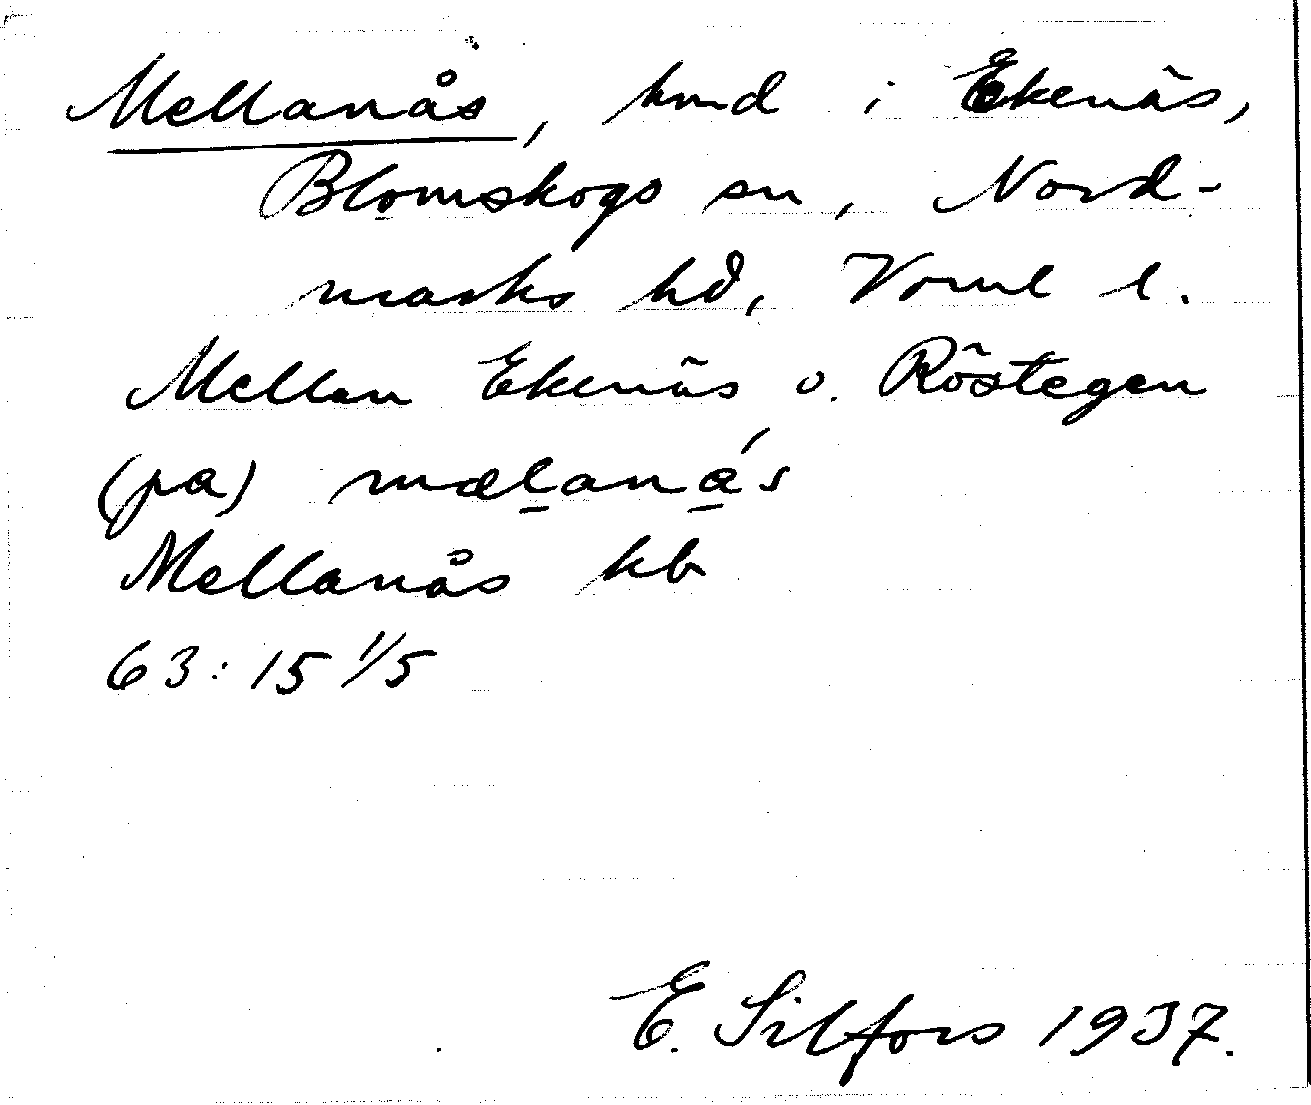 Mellanås, hmd i Ekenäs,
Blomskogs sn, Nord-
marks hd, Vrml l.
Mellan Ekenäs o. Röstegen
(pa) mælanás
Mellanås kb
63:15 1/5
E. Silfors 1937.